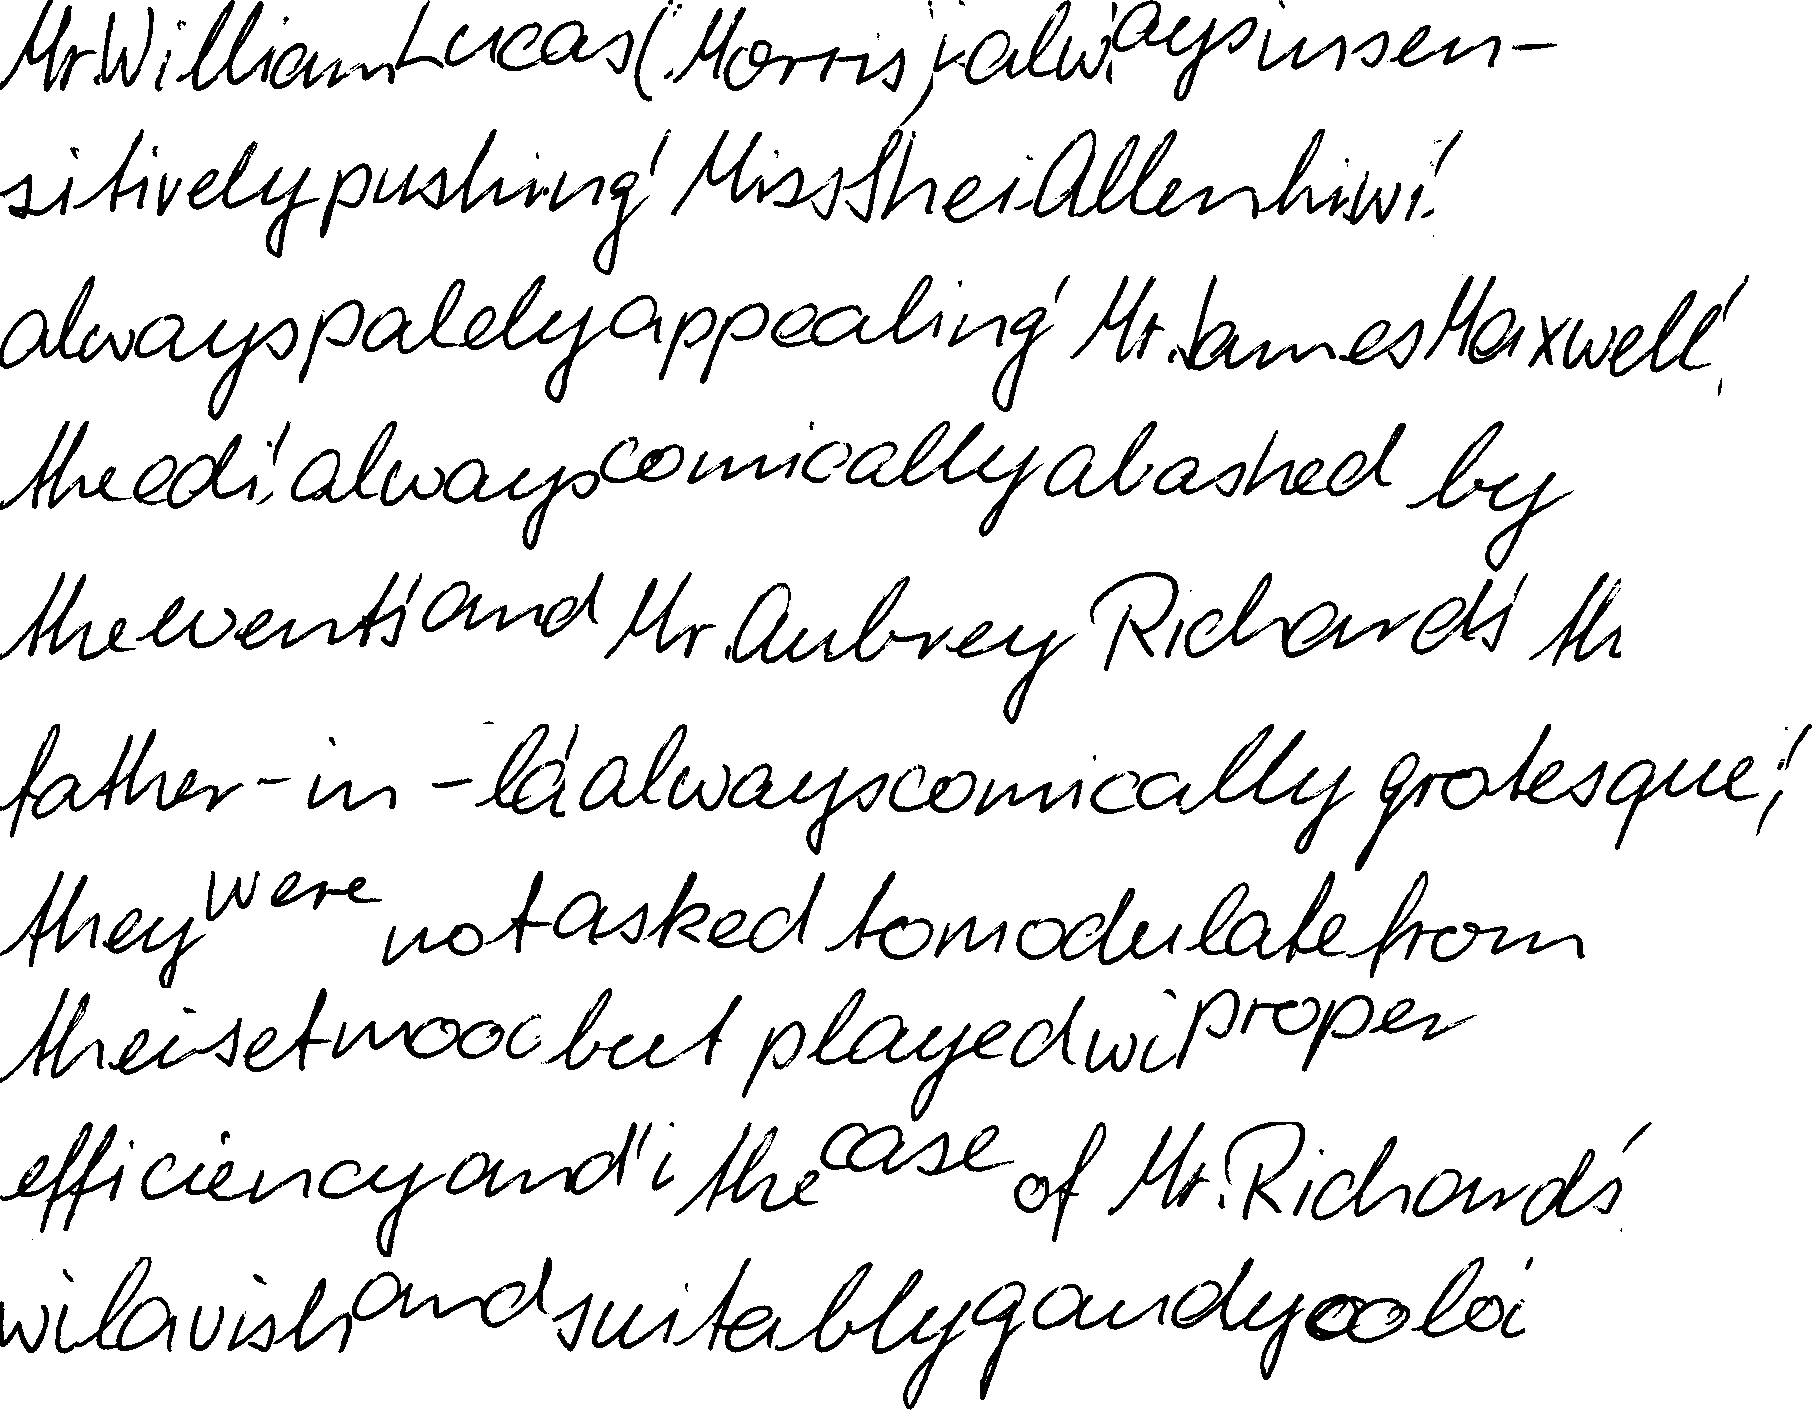 Mr. William Lucas (Morris), always insen-
sitively pushing Miss Shei Allen hi wi
always palely appealing Mr. James Maxwell,
the edi always comically abashed by
the events and Mr. Aubrey Richards th
father-in-la always comically grotesque;
they were not asked to modulate from
thei set mood but played wi proper
efficiency and i the case of Mr. Richards
wi lavish and suitably gaudy colo